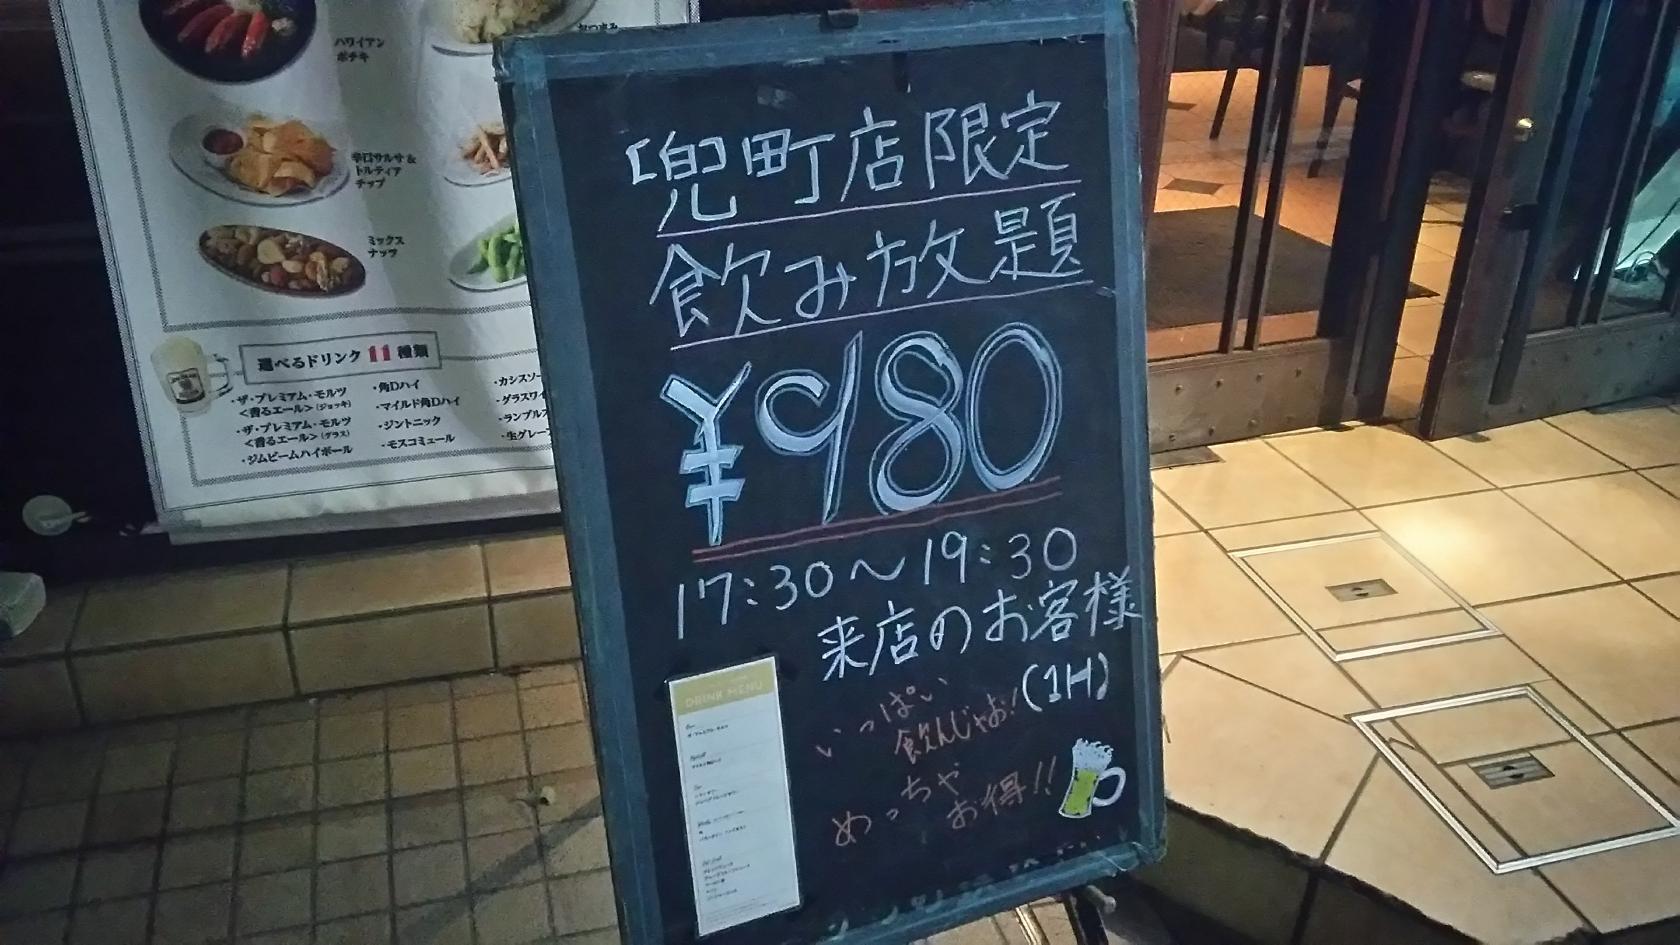 ハワイアン
ポチキ
辛口サルサ&
トルティア
チップ
ミックス
ナッツ
選べるドリンク 11 種類
・ザ・プレミアム・モルツ
<香るエール>(ジョッキ)
・ザ・プレミアム・モルツ
<香るエール>(グラス)
・ジムビームハイボール
・角Dハイ
・マイルド角Dハイ
・ジントニック
・モスコミュール
・カシスソー
・グラスワイ
・ランブルス
・生グレー
兜町店限定
飲み放題
¥980
17:30～19:30
来店のお客様
(1H)
いっぱい
飲んじゃお!
めっちゃ
お得!!
DRINK MENU